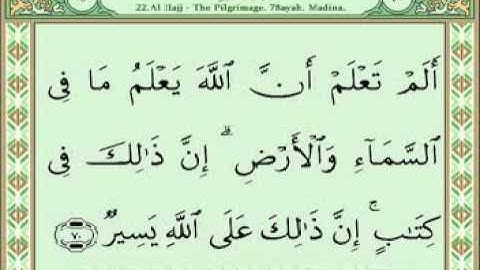 22.Al Hajj - The Pilgrimage. 78ayah. Madina.
أَلَمْ تَعْلَمْ أَنَّ ٱللَّهَ يَعْلَمُ مَا فِى
ٱلسَّمَآءِ وَٱلْأَرْضِ ۗ إِنَّ ذَٰلِكَ فِى
كِتَٰبٍ ۚ إِنَّ ذَٰلِكَ عَلَى ٱللَّهِ يَسِيرٌ ٧٠